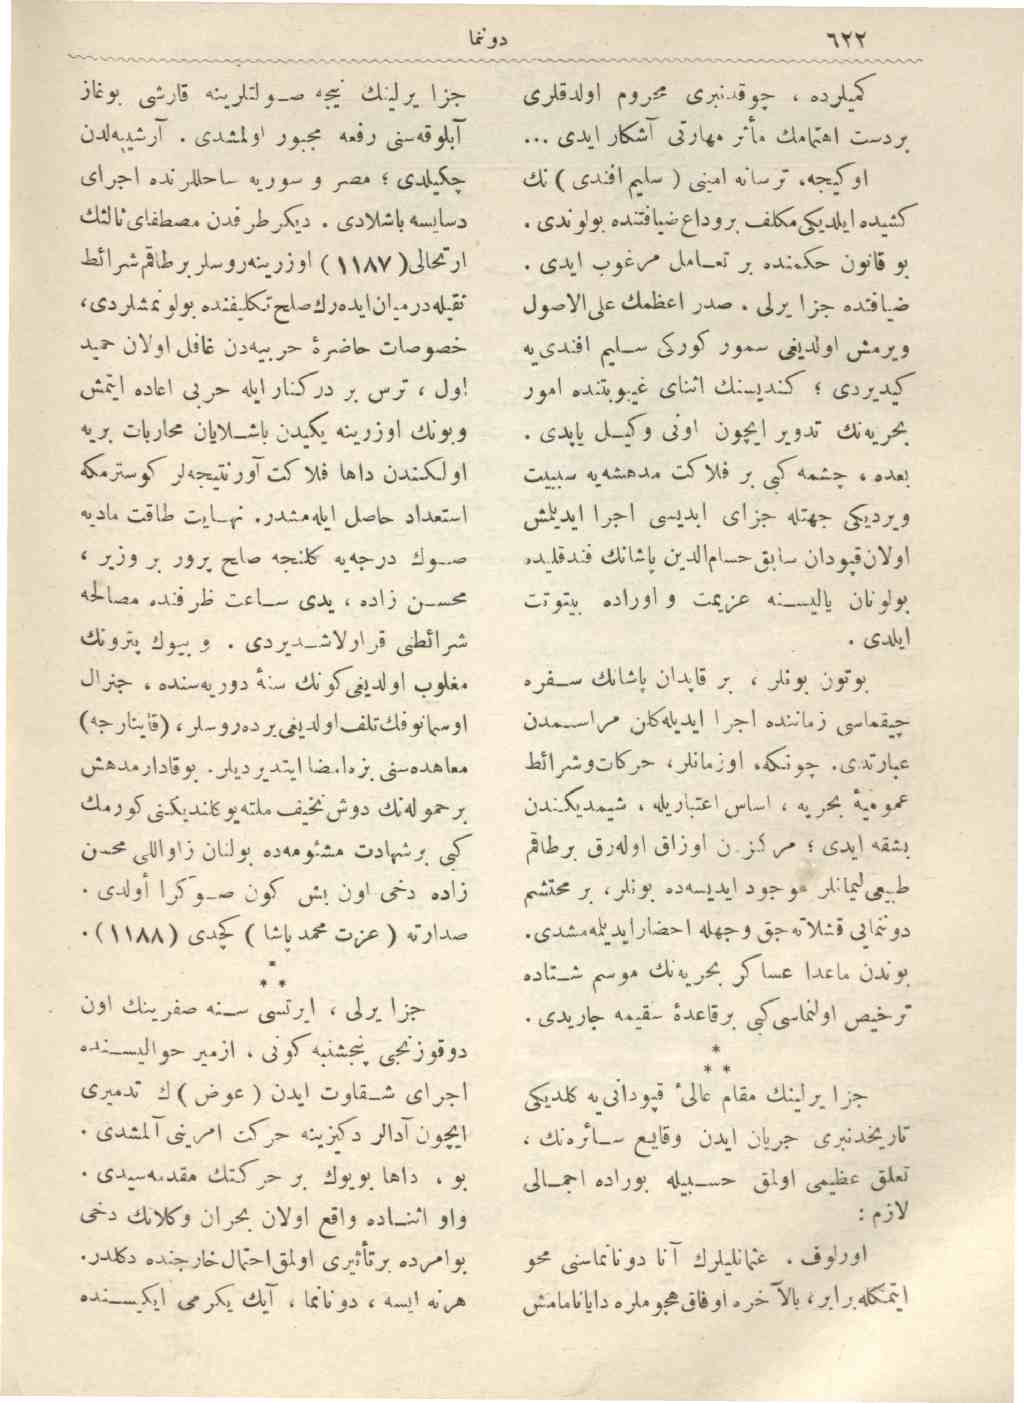 ٦٢٢
دوننما
كميلرده ، چوقدنبرى محروم اولدقلرى
بردست اهتمامك مأثر مهارتى آشكار ايدى ...
او كيجه، ترسانه امينى ( سليم افندى ) نك
كشيده ايلديكى مكلف بروداع ضيافتنده بولوندى .
بو قانون حكمنده بر تعـامل مرغوب ايدى .
ضيافتده جزا يرلى . صدر اعظمك على الاصول
ويرمش اولديغى سمور كوركى سـليم افندى‌يه
كيديردى ؛ كنديسنك اثناى غيبوبتنده امور
بحريه‌نك تدوير ايچون اونى وكيـل ياپدى .
بعده ، چشمه كبى بر فلاكت مدهشه‌يه سببيت
ويرديكى جهتله جزاى ابديسى اجرا ايديلمش
اولان قپودان سابق حسام‌الدين پاشانك فندقليده
بولونان ياليسـنه عزيمت و اوراده بيتوتت
ايلدى .
بوتون بونلر ، بر قاپدان پاشانك سـفره
چيقماسى زماننده اجرا ايديله‌كلن مراسـمدن
عبارتدى. چونكه، اوزمانلر، حركات وشرائط
عموميۀ بحريه ، اساس اعتباريله ، شيمديكندن
بشقه ايدى ؛ مركزدن اوزاق اوله‌رق برطاقم
طبيعى ليمانلر موجود ايديسه‌ده بونلر، بر محتشم
دوننمايى قشلاته‌جق وجهله احضارايديلمه‌مشدى.
بوندن ماعدا عساكر بحريه‌نك موسم شـتاده
ترخيص اولنماسى كبى برقاعدۀ سقيمه جاريدى .
*
* *
جزا يرلينك مقام عالىٔ قپودانى‌يه كلديكى
تاريخدنبرى جريان ايدن وقايـع سـائره‌نك ،
تعلق عظيمى اولمق حسـبيله بوراده اجمـالى
لازم :
اورلوف . عثمانليلرك آنا دونانماسنى محو
ايتمكله برابر، بالآخره اوفاق هجوملره دايانامامش
جزا يرلينك نيجه صـولتلرينه قارشى بوغاز
آبلوقه‌سنى رفعه مجبور اولمشدى . آرشيپه‌لدن
چكيلدى ؛ مصر و سوريه ساحللرنده اجراى
دسايسه باشلادى . ديكر طرفدن مصطفاى ثالثك
ارتحالى (١١٨٧) اوزرينه روسلر برطاقم شرائط
ثقيله درميان ايده‌رك صلح تكليفنده بولونمشلردى،
خصوصات حاضرۀ حربيه‌دن غافل اولان حميد
اول ، ترس بر دركنار ايله حربى اعاده ايتمش
وبونك اوزرينه يكيدن باشـلايان محاربات بريه
اولكندن داها فلاكت آور نتيجه‌لر كوسترمكه
استعداد حاصل ايله‌مشدر. نهـايت طاقت ماديه
صـوك درجه‌يه كلنجه صلح پرور بر وزير ،
محسـن زاده ، يدى سـاعت ظرفنده مصالحه
شرائطنى قرارلاشـديردى . و بيوك پترونك
مغلوب اولديغى كونك سنۀ دوريه‌سنده ، جنرال
اوسمانوفك تلف اولديغى يرده روسلر ، (قاينارجه)
معاهده‌سنى بزه امضا ايتديرديلر. بوقادار مدهش
بر حموله‌نك دوش نحيف ملته يوكلنديكنى كورمك
كبى برشهادت مشئومه‌ده بولنان زاواللى محسن
زاده دخى اون بش كون صـوكرا أولدى .
صدارته ( عزت محمد پاشا ) كچدى (١١٨٨) .
*
* *
جزا يرلى ، ايرتسى سـنه صفرينك اون
دوقوزنجى پنجشنبه كونى ، ازمير حواليسـنده
اجراى شـقاوت ايدن ( عوض ) ك تدميرى
ايچون آدالر دكيزينه حركت امرينى آلمشدى .
بو ، داها بويوك بر حركتك مقدمه‌سيدى .
واو اثنـاده واقع اولان بحران وكلانك دخى
بوامرده برتأثيرى اولمق احتمال خارجنده دكلدر.
هرنه ايسه ، دونانما ، آيك يكرمى ايكيسـنده